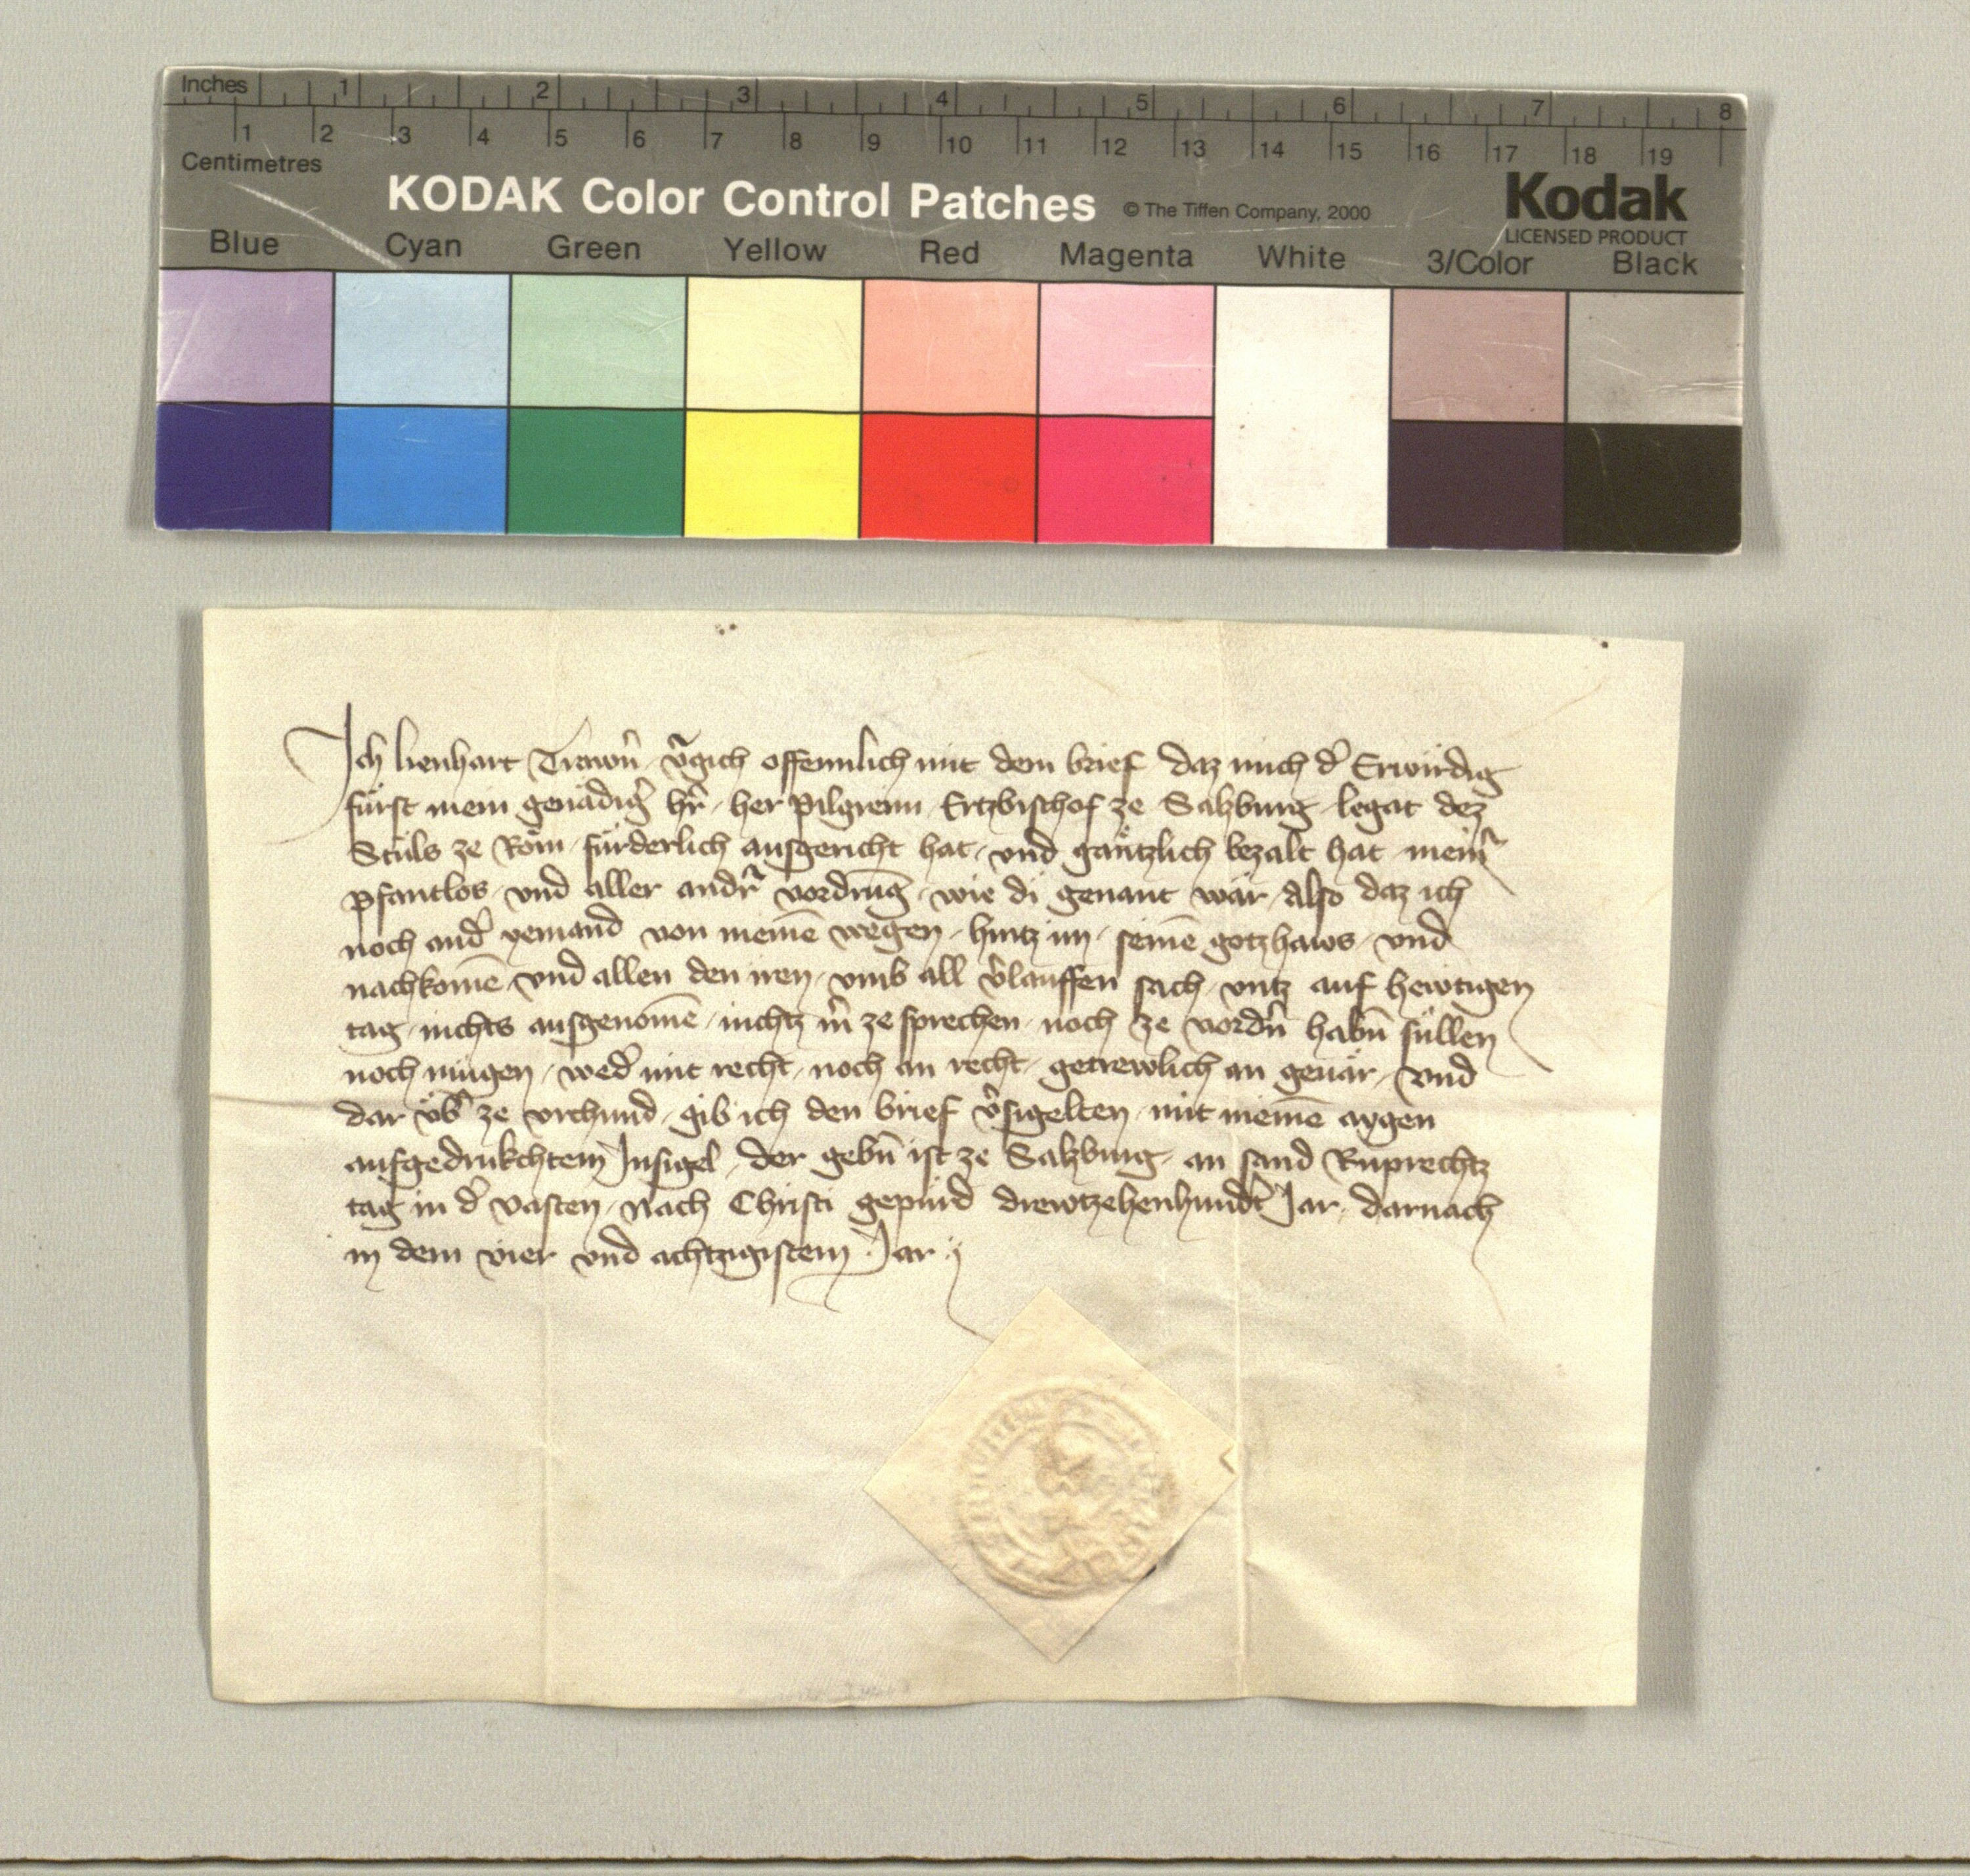 Inches 1 2 3 4 5 6 7 8
1 2 3 4 5 6 7 8 9 10 11 12 13 14 15 16 17 18 19
Centimetres
KODAK Color Control Patches © The Tiffen Company, 2000 Kodak
LICENSED PRODUCT
Blue Cyan Green Yellow Red Magenta White 3/Color Black
Ich lienhart v̾gich offennlich mit dem brief daz mich d̾ Erwirdig
fürst mein genädig̾ hr̄ her Pilgreim Ertzbischof ze Salzburg legat dez
Stůls ze Rom fürderlich ausgericht hat, vnd gäntzlich bezalt hat mein̾
pfantlos vnd aller andr̾ vordrūg wie di genant wär, Also daz ich
noch and̾ yemand von meinē wegen, hintz im, seinē gotzhaws vnd
nachkomē vnd allen den iren, vmb all v̾lauffen sach, vntz auf hewtigen
tag, nichts ausgenomē, nichtz m̾ ze sprechen noch ze vordn̄ habn̄ süllen
noch mügen, wed̾ mit recht, noch an recht, getrewlich an geuär, Vnd
dar vb̾ ze vrchund, gib ich den brief v̾sigelten, mit meinē aygen
aufgedrukchtem Insigel, der gebn̄ ist ze Salzburg, an sand Ruprechtz
tag in d̾ vasten, nach Christi gepurd drewtzehenhund̾t Jar, darnach
in dem vier vnd achtzigistem Jar